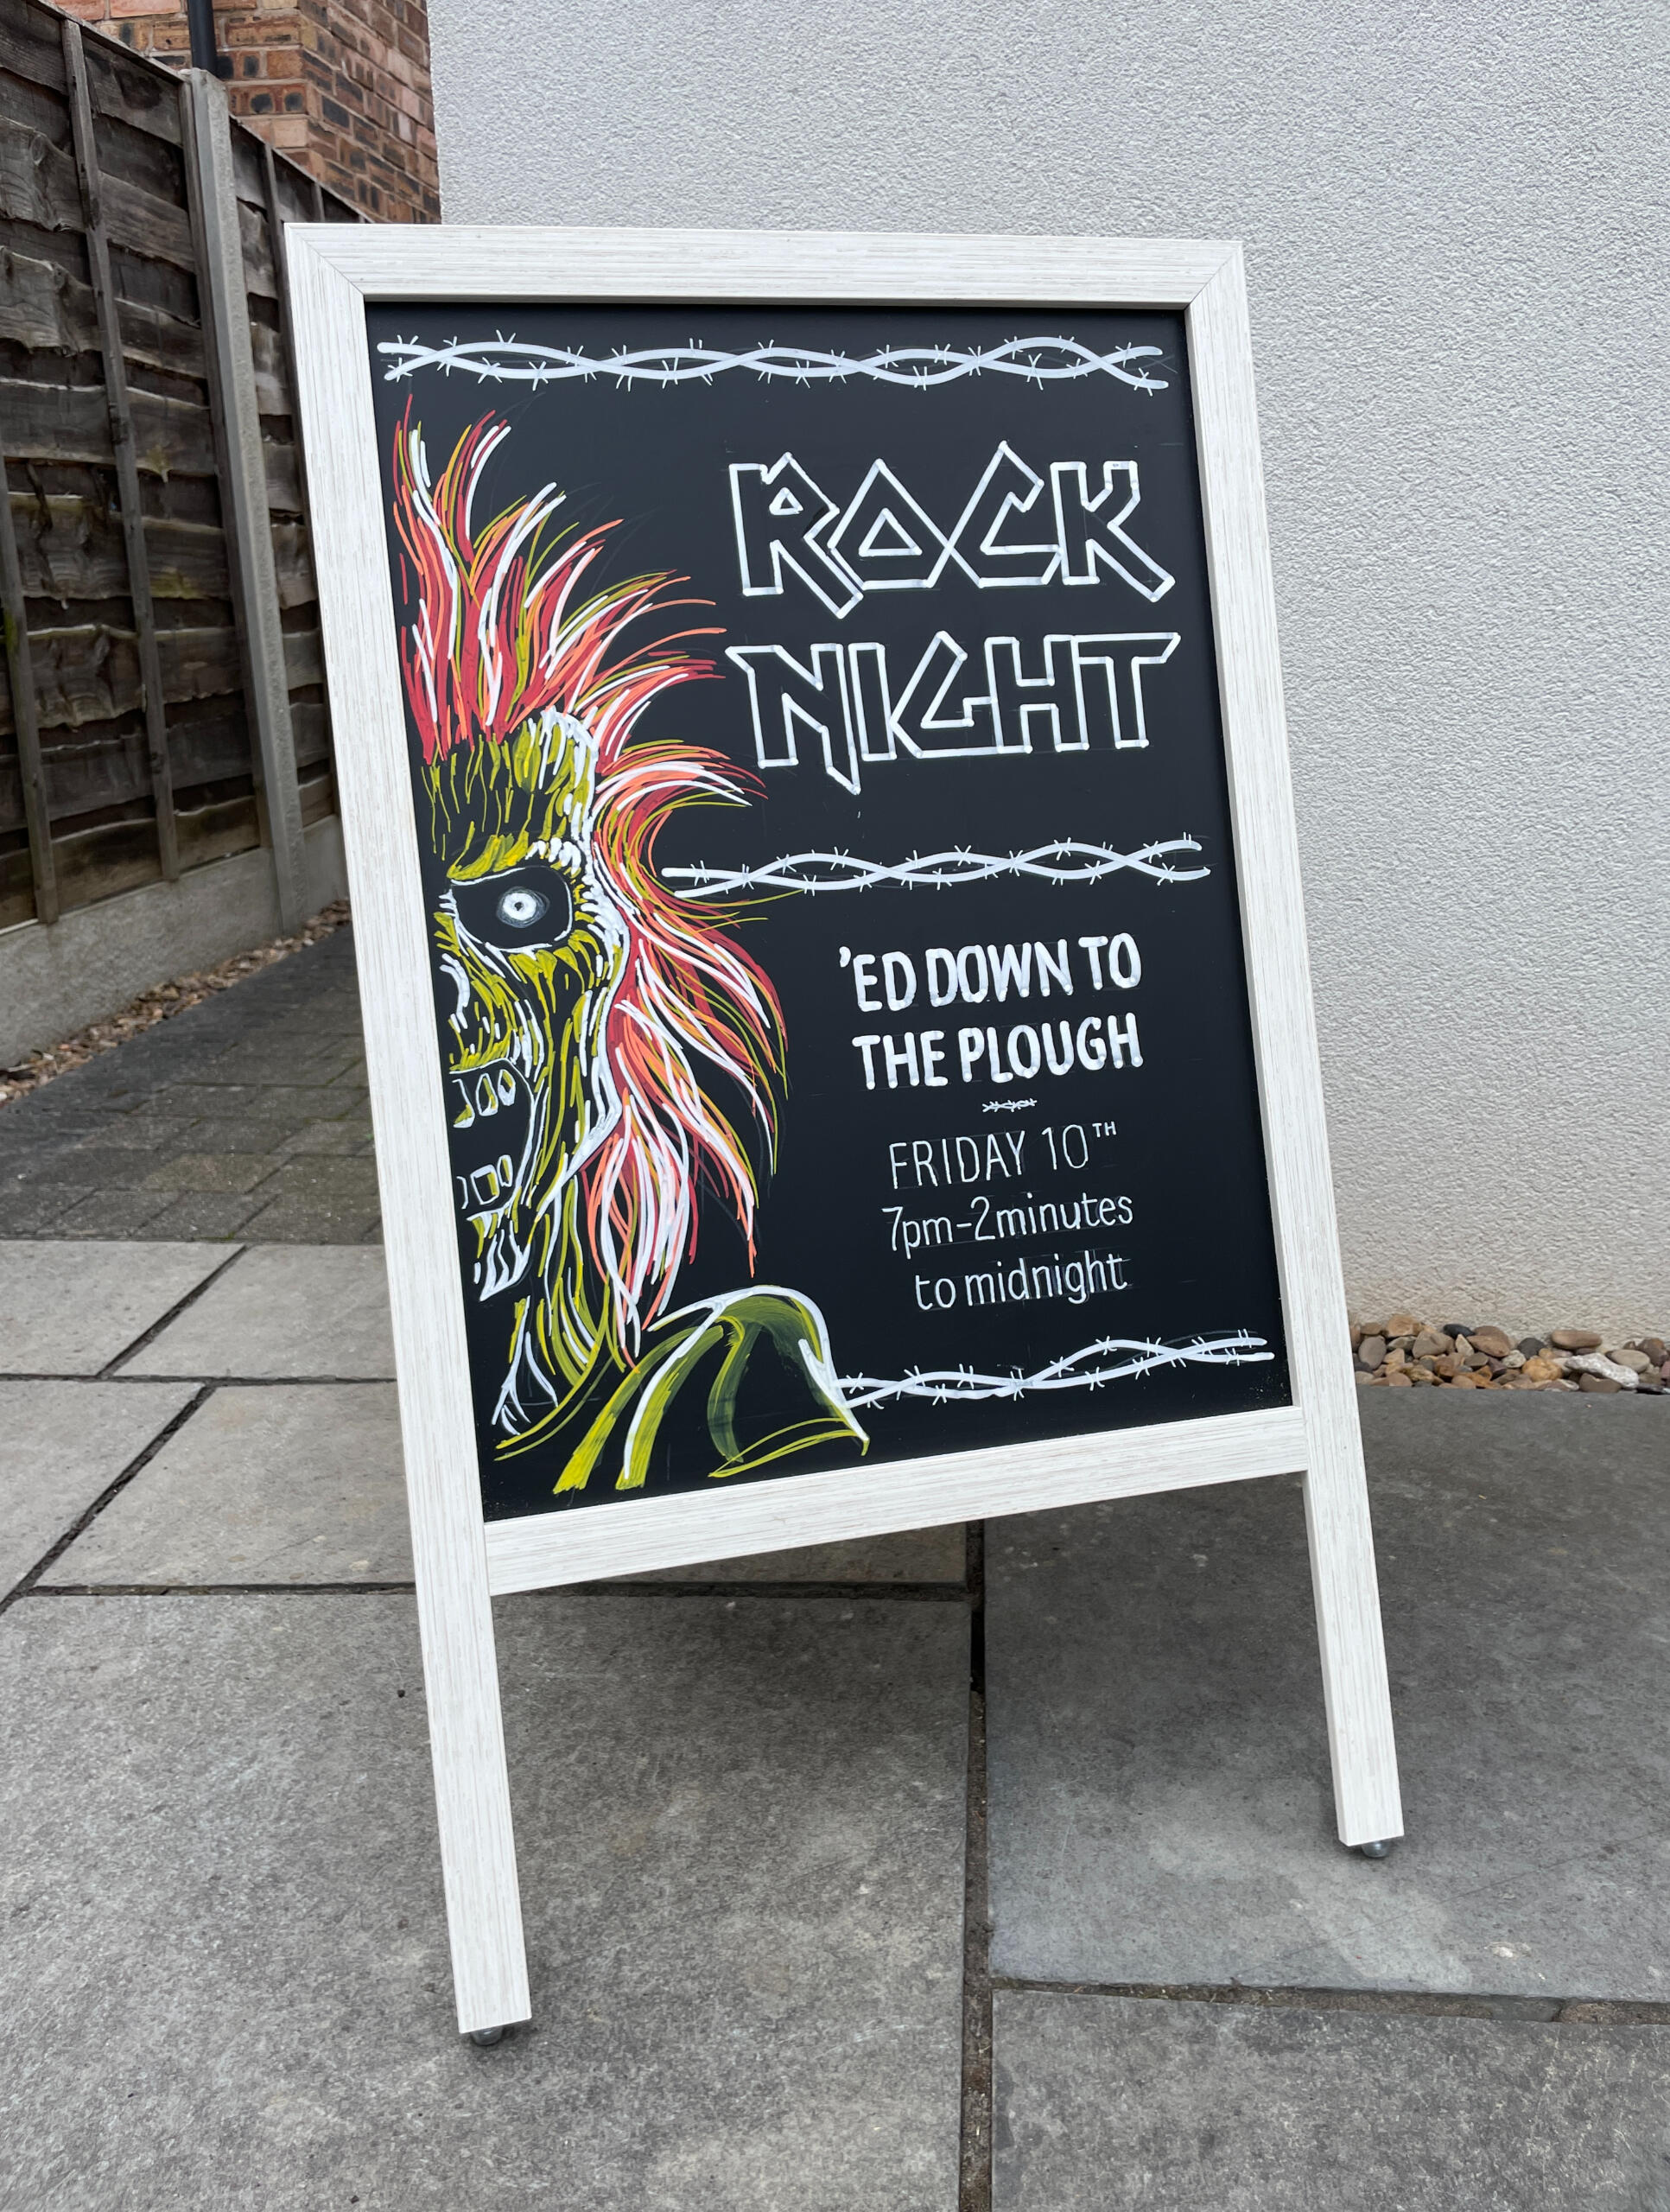 ROCK
NIGHT
'ED DOWN TO
THE PLOUGH
FRIDAY 10TH
7pm-2minutes
to midnight